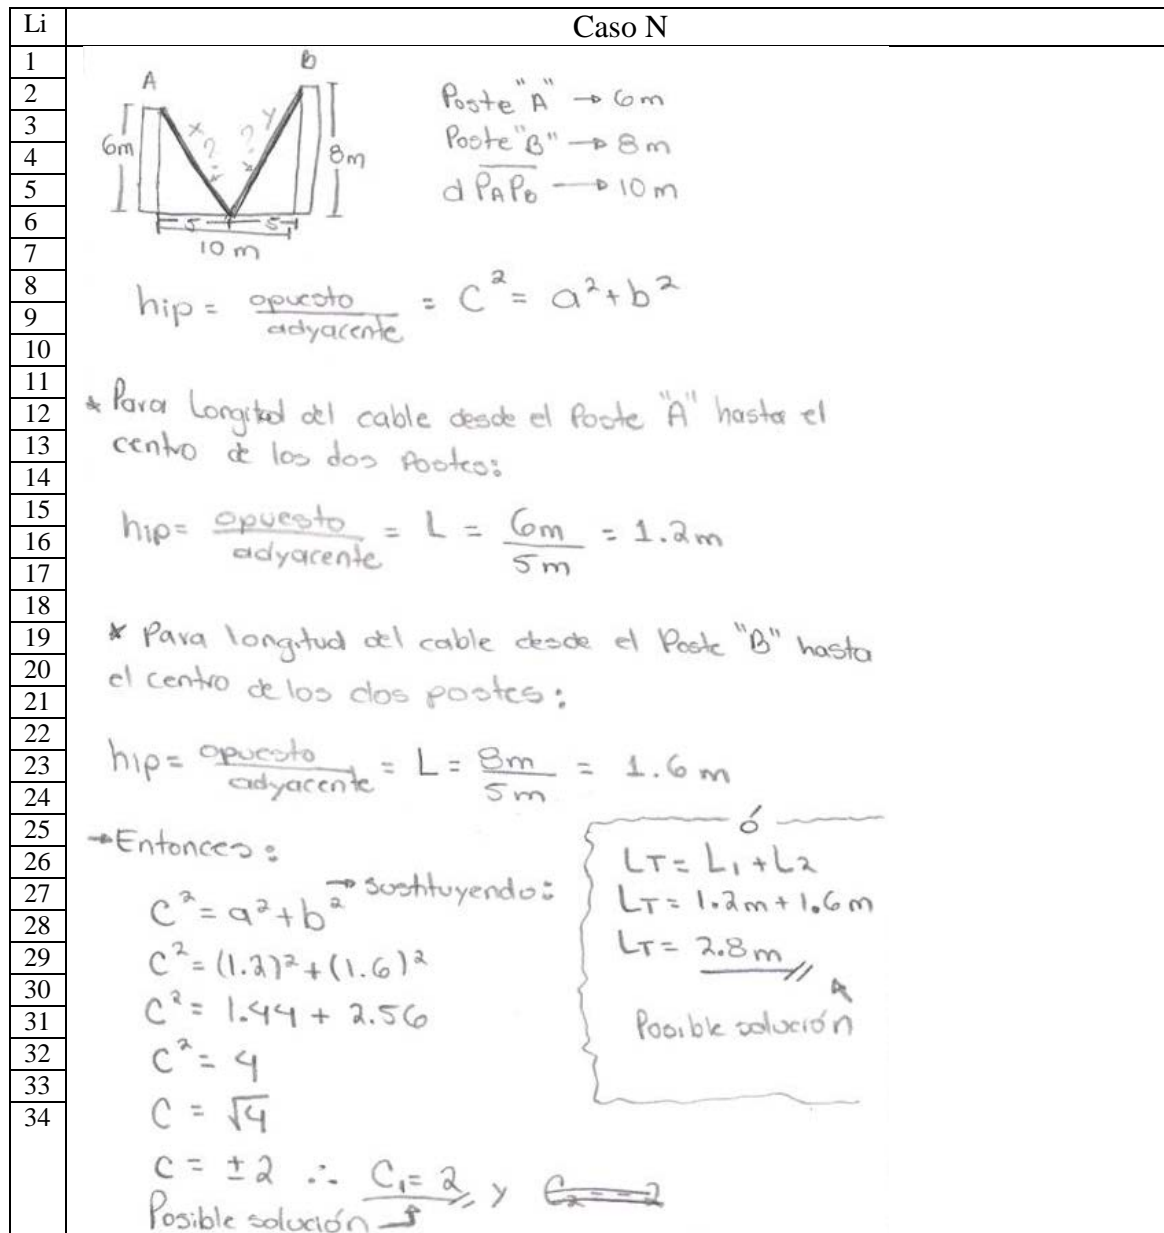 Li Caso N
1
2
3
4
5
6
7
8
9
10
11
12
13
14
15
16
17
18
19
20
21
22
23
24
25
26
27
28
29
30
31
32
33
34
A B
x ? y ?
6m 8m
5 5
10 m
Poste "A" → 6m
Poste "B" → 8m
d PAPB → 10 m
hip = opuesto/adyacente = C² = a² + b²
* Para Longitud del cable desde el Poste "A" hasta el
centro de los dos Postes:
hip = opuesto/adyacente = L = 6m/5m = 1.2m
* Para longitud del cable desde el Poste "B" hasta
el centro de los dos postes:
hip = opuesto/adyacente = L = 8m/5m = 1.6 m
→ Entonces:
C² = a² + b² → sustituyendo:
C² = (1.2)² + (1.6)²
C² = 1.44 + 2.56
C² = 4
C = √4
C = ±2 ∴ C₁ = 2 y C₂ = -2
Posible solución
ó
LT = L₁ + L₂
LT = 1.2m + 1.6m
LT = 2.8m
Posible solución